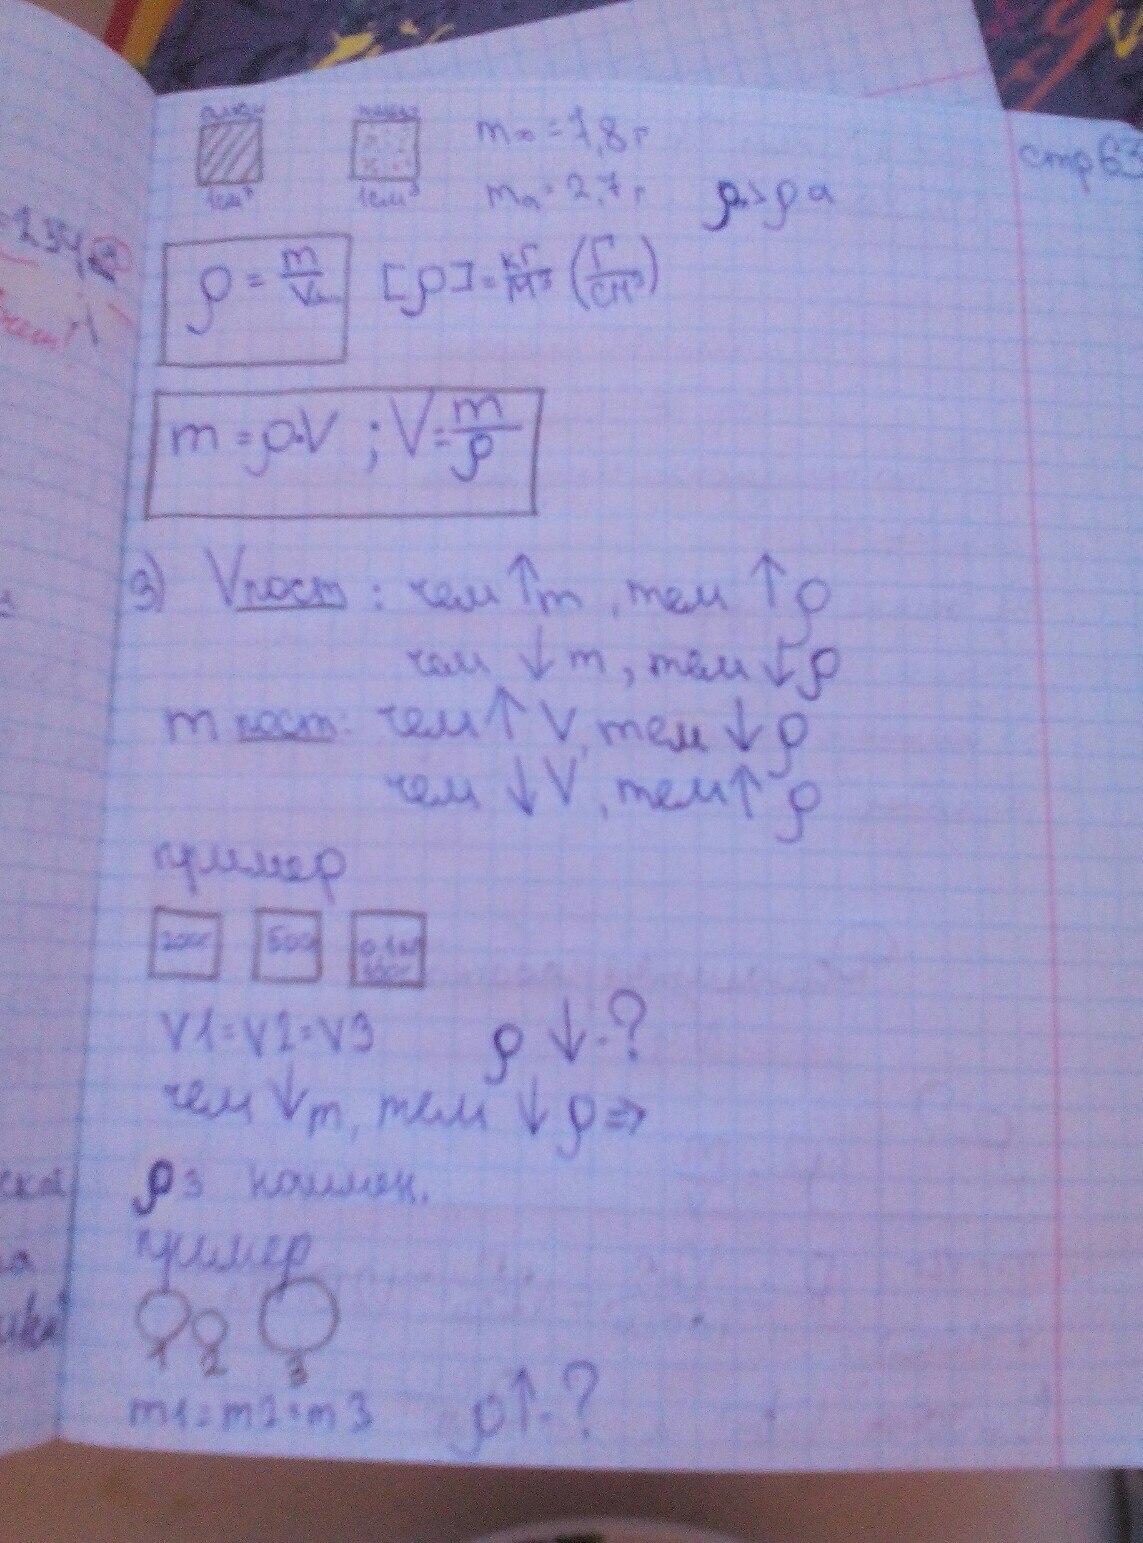 1см³ 1см³
m = 7,8 г
mа = 2,7 г ρ > ρа
стр 63
ρ = m/V [ρ] = кг/м³ (г/см³)
m = ρ·V ; V = m/ρ
3) V пост : чем ↑ m , тем ↑ ρ
чем ↓ m , тем ↓ ρ
m пост : чем ↑ V , тем ↓ ρ
чем ↓ V , тем ↑ ρ
пример
200г 500 0,1кг
V1 = V2 = V3 ρ ↓ - ?
чем ↓ m , тем ↓ ρ ⇒
ρ3 наимен.
пример
1 2 3
m1 = m2 = m3 ρ ↑ - ?